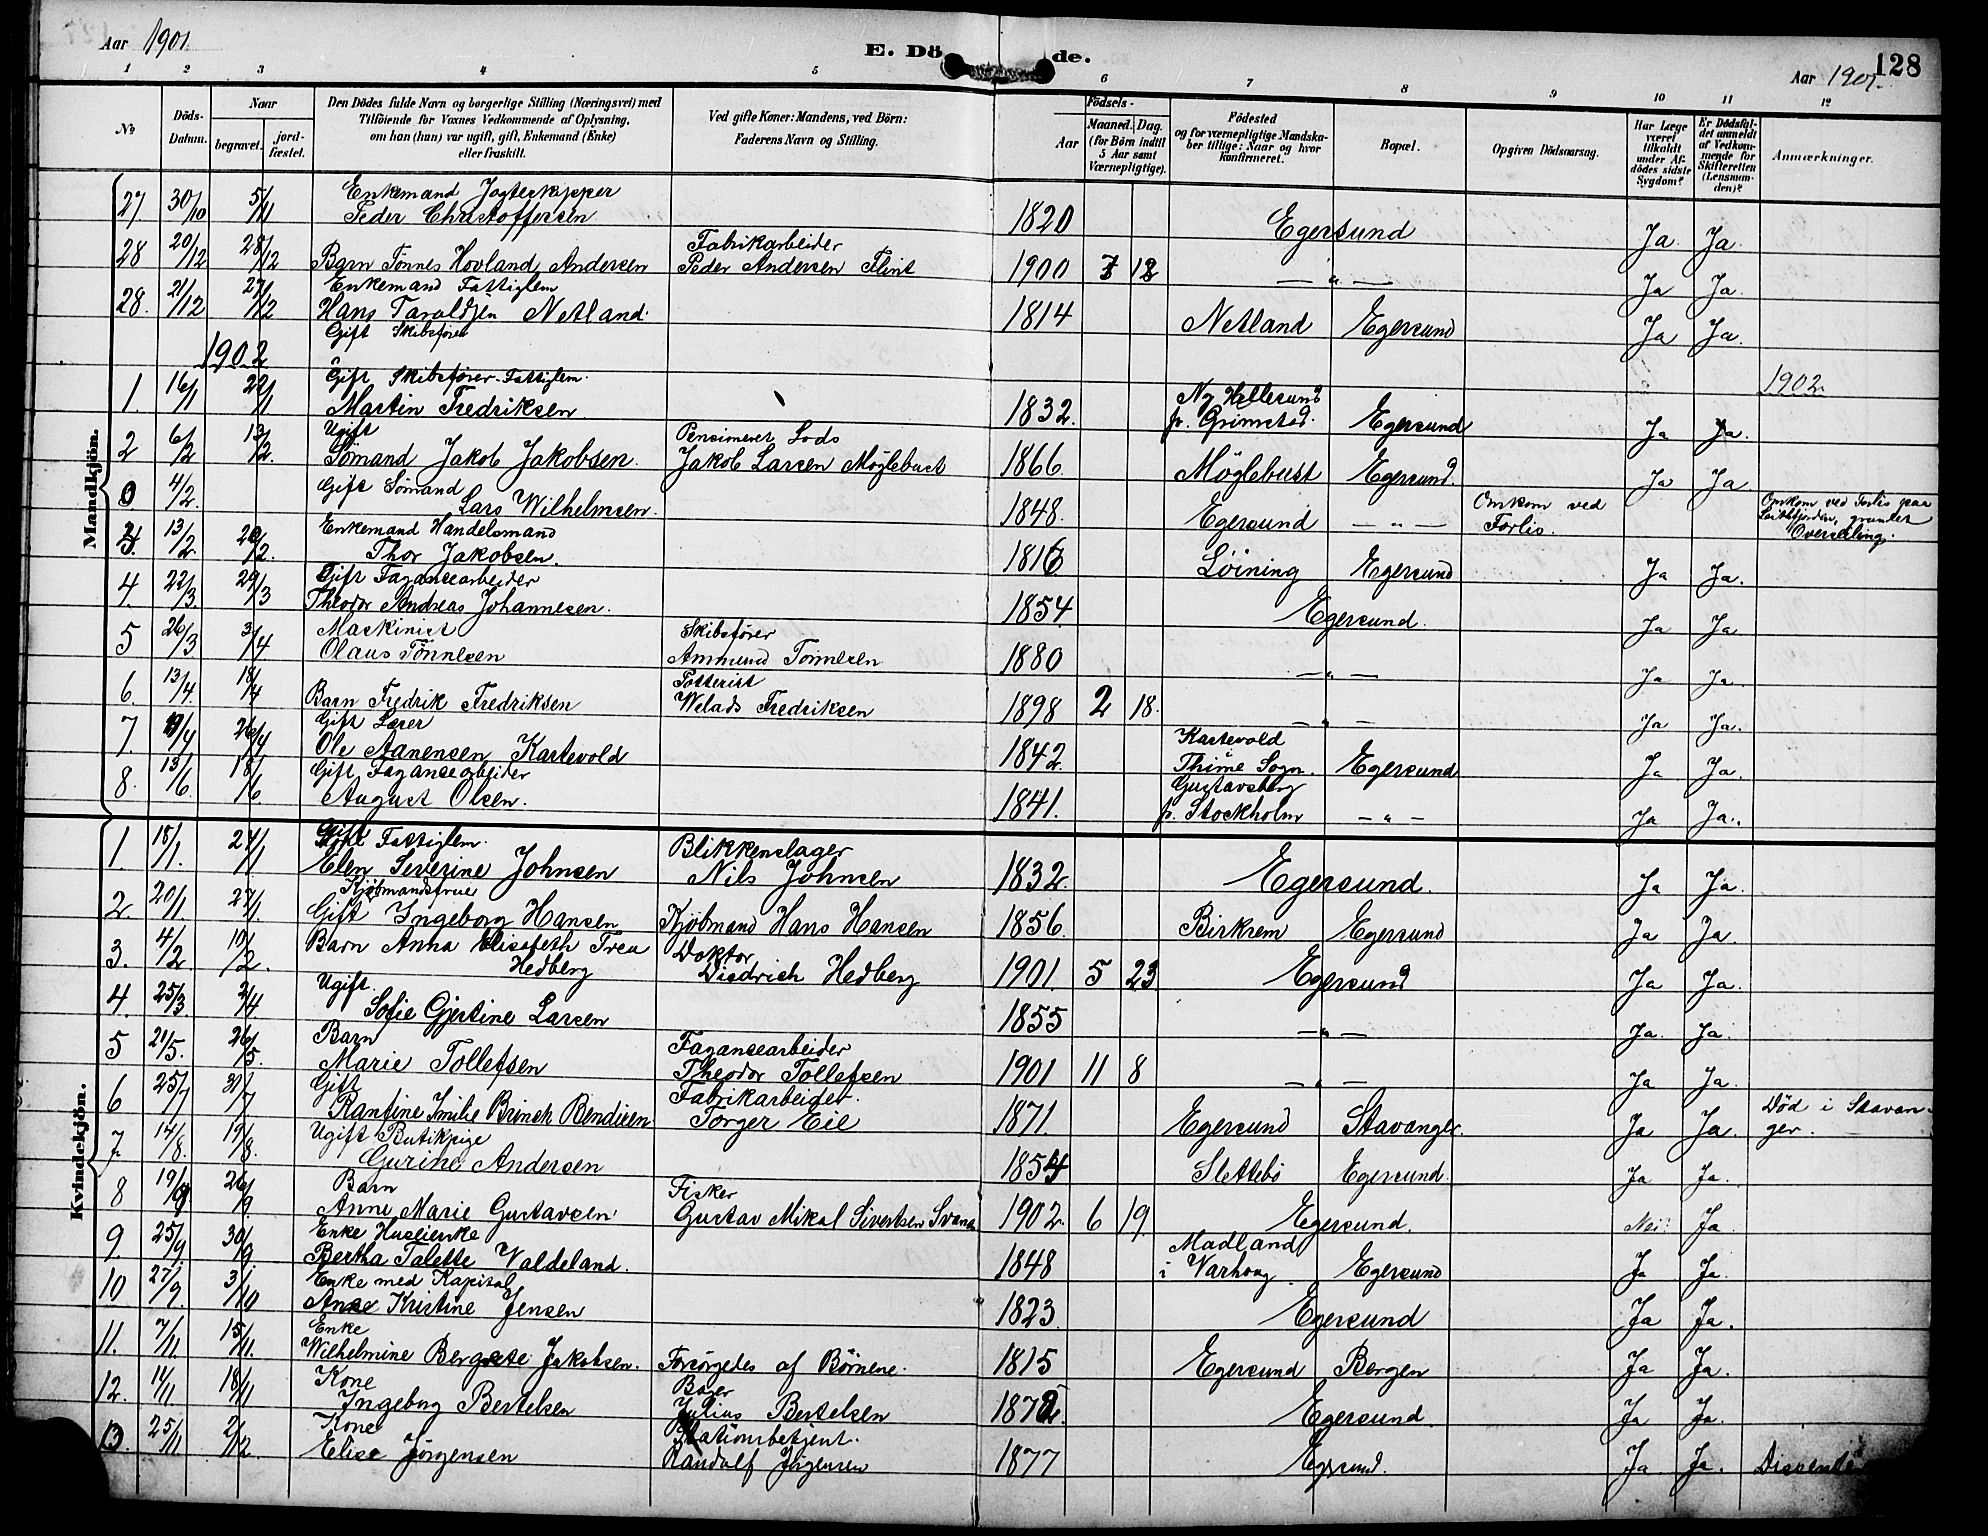 Aar 1901.
E. Dö de.
Aar 1901.
128
1 2 3 4 5 6 7 8 9 10 11 12
No
Döds-Datum.
Naar begravet. jord-fæstet.
Den Dödes fulde Navn og borgerlige Stilling (Næringsvei) med Tilföiende for Voxnes Vedkommende af Oplysning, om han (hun) var ugift, gift, Enkemand (Enke) eller fraskilt.
Ved gifte Koner: Mandens, ved Börn: Faderens Navn og Stilling.
Födsels-
Aar
Maaned. Dag. (for Börn indtil 5 Aar samt Værnepligtige).
Födested og for værnepligtige Mandskaber tillige: Naar og hvor konfirmeret.
Bopæl.
Opgiven Dödsaarsag.
Har Læge været tilkaldt under Afdödes sidste Sygdom?
Er Dödsfaldet anmeldt af Vedkommende for Skifteretten (Lensmanden)?
Anmærkninger.
Mandkjön.
27. 30/10 5/11 Enkemand Jagteskipper Peder Christoffersen 1820 Egersund Ja. Ja.
28 20/12 28/12 Barn Tönnes Hovland Andersen Fabrikarbeider Peder Andersen Flint 1900 7 12 — " — Ja Ja.
28. 21/12 27/12 Enkemand Fattiglem Hans Taraldsen Netland. 1814 Netland Egersund Ja Ja
Gift Skibsförer
1902
1902.
1. 16/1 22/1 Gift Skibsförer. Fattiglem. Martin Fredriksen 1832. Ny Hellesund p. Grimstad. Egersund Ja Ja.
2 6/2 13/2. Ugift Sömand Jakob Jakobsen. Pensioneret Lods Jakob Larsen Möglebust 1866. Möglebust Egersund. Ja Ja
0 4/2. Gift Sömand Lars Wilhelmsen. 1848. Egersund — " — Omkom ved Forlis. Omkom ved Forlis paa grundet Overseiling.
3. 13/2. 20/2. Enkemand Handelsmand Thor Jakobsen. 1816 Löining Egersund Ja Ja.
4. 22/3. 29/3 Gift Fayancearbeider Theodor Andreas Johannesen. 1854. Egersund. Ja Ja.
5 26/3 3/4 Maskinist Olaus Tönnesen Skibsförer Ammund Tönnesen 1880 — " — Ja Ja.
6. 13/4. 18/4 Barn Fredrik Fredriksen Potterist Welads Fredriksen 1898 2 18. — " — Ja Ja.
7. 19/4 26/4 Gift Lærer Ole Aanensen Kartevold 1842. Kartevold i Thime Sogn. Egersund Ja Ja.
8. 13/6. 18/6 Gift Fayancearbeider August Olsen. 1841. Gustavsberg p. Stockholm — " — Ja Ja.
Kvindekjön.
1. 18/1. 24/1 Gift Fattiglem. Elen Severine Johnsen Blikkenslager Nils Johnsen 1832. Egersund. Ja Ja.
2. 20/1. 27/1. Kjöbmandsfrue Gift Ingeborg Hansen Kjöbmand Hans Hansen 1856. Birkrem Egersund Ja Ja.
3. 4/2 10/2. Barn Anna Elisabeth Trea Hedberg Doktor Diedrich Hedberg 1901. 5 23 Egersund Ja Ja.
4. 25/3 2/4 Ugift. Sofie Gjertine Larsen 1855 — " — Ja. Ja.
5 21/5. 26/5. Barn Marie Tollefsen Fayancearbeider Theodor Tollefsen 1901 11 8 — " — Ja Ja.
6 25/7 31/7 Gift Rantine Emilie Brinch Bendixen Fabrikarbeider. Torger Eie 1871. Egersund Stavanger. Ja Ja. Död i Stavanger.
7. 14/8. 19/8. Ugift Butikpige Gurine Andersen 1854 Slettebö Egersund. Ja Ja.
8 19/9 26/9 Barn Anne Marie Gustavsen Fisker Gustav Mikal Sivertsen Svanes 1902. 6 19. Egersund. Nei. Ja
9. 25/9 30/9 Enke Huseierske Bertha Talette Valdeland. 1848 Madland i Varhoug. Egersund Ja Ja.
10 27/9. 3/10 Enke med Kapital Anne Kristine Jensen 1823. Egersund Ja Ja.
11. 7/11 15/11. Enke Wilhelmine Bergitte Jakobsen. Forsörgedes af Börnene. 1815 Egersund Bergen Ja Ja.
12. 14/11. 18/11 Kone Ingeborg Bertelsen Bager Julius Bertelsen 1872. Egersund. Ja Ja.
13. 25/11 2/12 Kone Elise Jörgensen Stationsbetjent. Randolf Jörgensen 1877 Egersund. Ja. Ja. Dissente